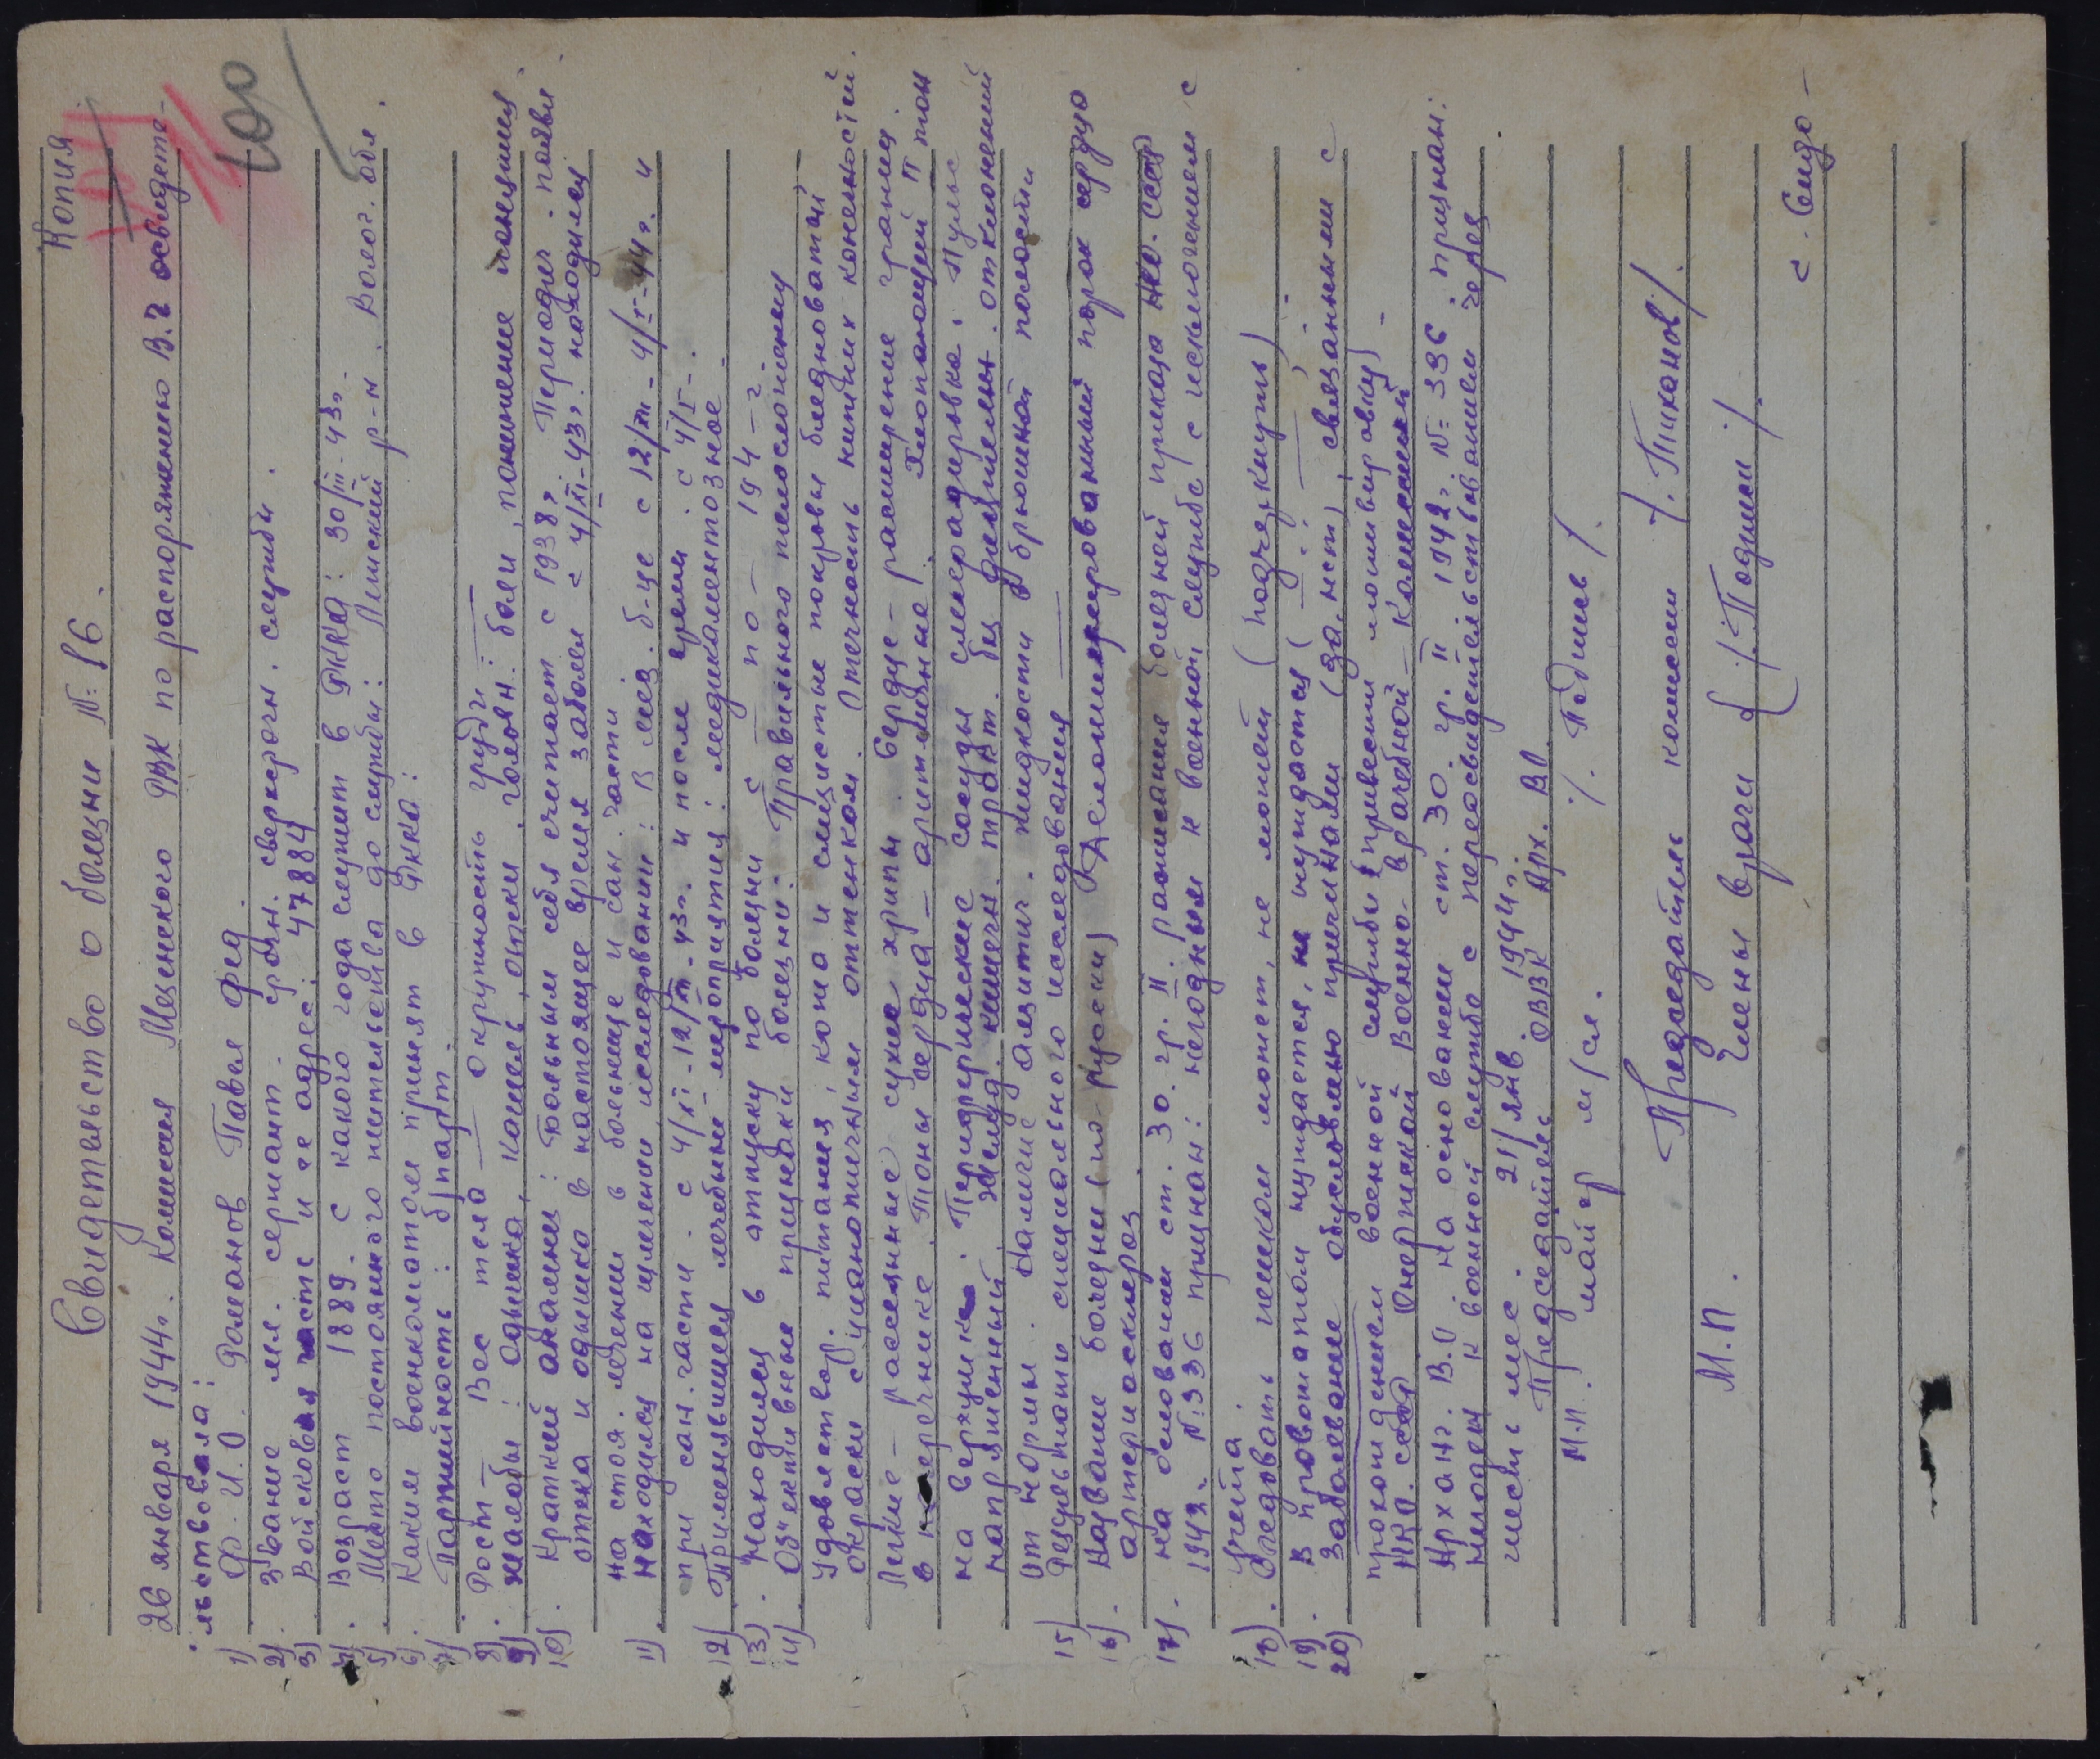 Копия
100
Свидетельство о болезни №: 16.
26 января 1944г. Комиссия Мезенского РВК по распоряжению В.2 освидете-
льствовала:
1) Ф.И.О. Романов Павел Фед.
2) Звание мл. сержант. срочн. сверхсрочн. службы.
3) Войсковая часть и ее адрес: 47884
4) Возраст 1889. с какого года служит в РККА: 30/III-43г.
5) Место постоянного жительства до службы: Лимский р-н. Волог. обл.
6) Каким военкоматом принят в РККА:
7) Партийность: б/парт.
8) Рост — Вес тела — окружность груди —
9) Жалобы: Одышка, кашель, отеки, головн: боли, понижение
10) Краткий анамнез: Больным себя считает с 1938г. Периодич. появл.
отека и одышка в настоящее время заболел с 4/XI-43г. находился
на стоя. лечении в больнице и сан. части.
11) находился на излечении, исследовании: в мез. б-це с 12/XII-4/I-44г. и
при сан. части. с 4/XI-12/XII-43г. и после время. с 4/I-.
12) Применявшиеся лечебные мероприятия: медикаментозное
13) Находился в отпуску по болезни с — по — 194-г.
14) Объективные признаки болезни. Правильного телосложения
Удовлетвор. питания, кожа и слизистые покровы бледноватой
окраски с цианотичным оттенком. Отечность нижних конечностей.
Легкие — рассеянные сухие хрипы. Сердце — расширение границ.
в поперечнике. Тоны сердца — аритмичные. Хлопающий II тон
на верхушке. Периферические сосуды склерозировка. Пульс
напряженный. желуд. кишечн. тракт. без отклонений
от нормы. Наличие жидкости в брюшной полости
15) Результаты специального исследования —
16) Название болезни (по-русски) Декомпенсированный порок сердца
артериосклероз.
17) На основании ст. 30. гр. II. расписания болезней приказа НКО. СССР
1942г. №:336 признан: негодным к военной службе с исключением с
учета.
18) Следовать пешком может, не может (подчеркнуть) —
19) В провожатом нуждается, не нуждается
20) Заболевание обусловлено причинами (да, нет), связанными с
прохождением военной службы
НКО. СССР Онежской Военно-врачебной — Комиссией
Арханг. В.О. на основании ст. 30. гр. II. 1942г. №: 336. признан:
негоден к военной службе с переосвидетельствованием через
шесть мес. 21/янв. 1944г.
Председатель ОВВК Арх. ВО.
М.П. майор м/сл. /. Подшив /.
Председатель комиссии /. Тиханов/.
М.П. Члены врачи { /. Подшив /.